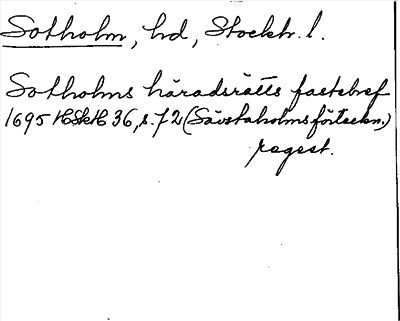 Sotholm, hd, Stockh. l.
Sotholms häradsrätts fastebref
1695 HSkH 36, s. 72 (Sävstaholmsförteckn.)
regest.